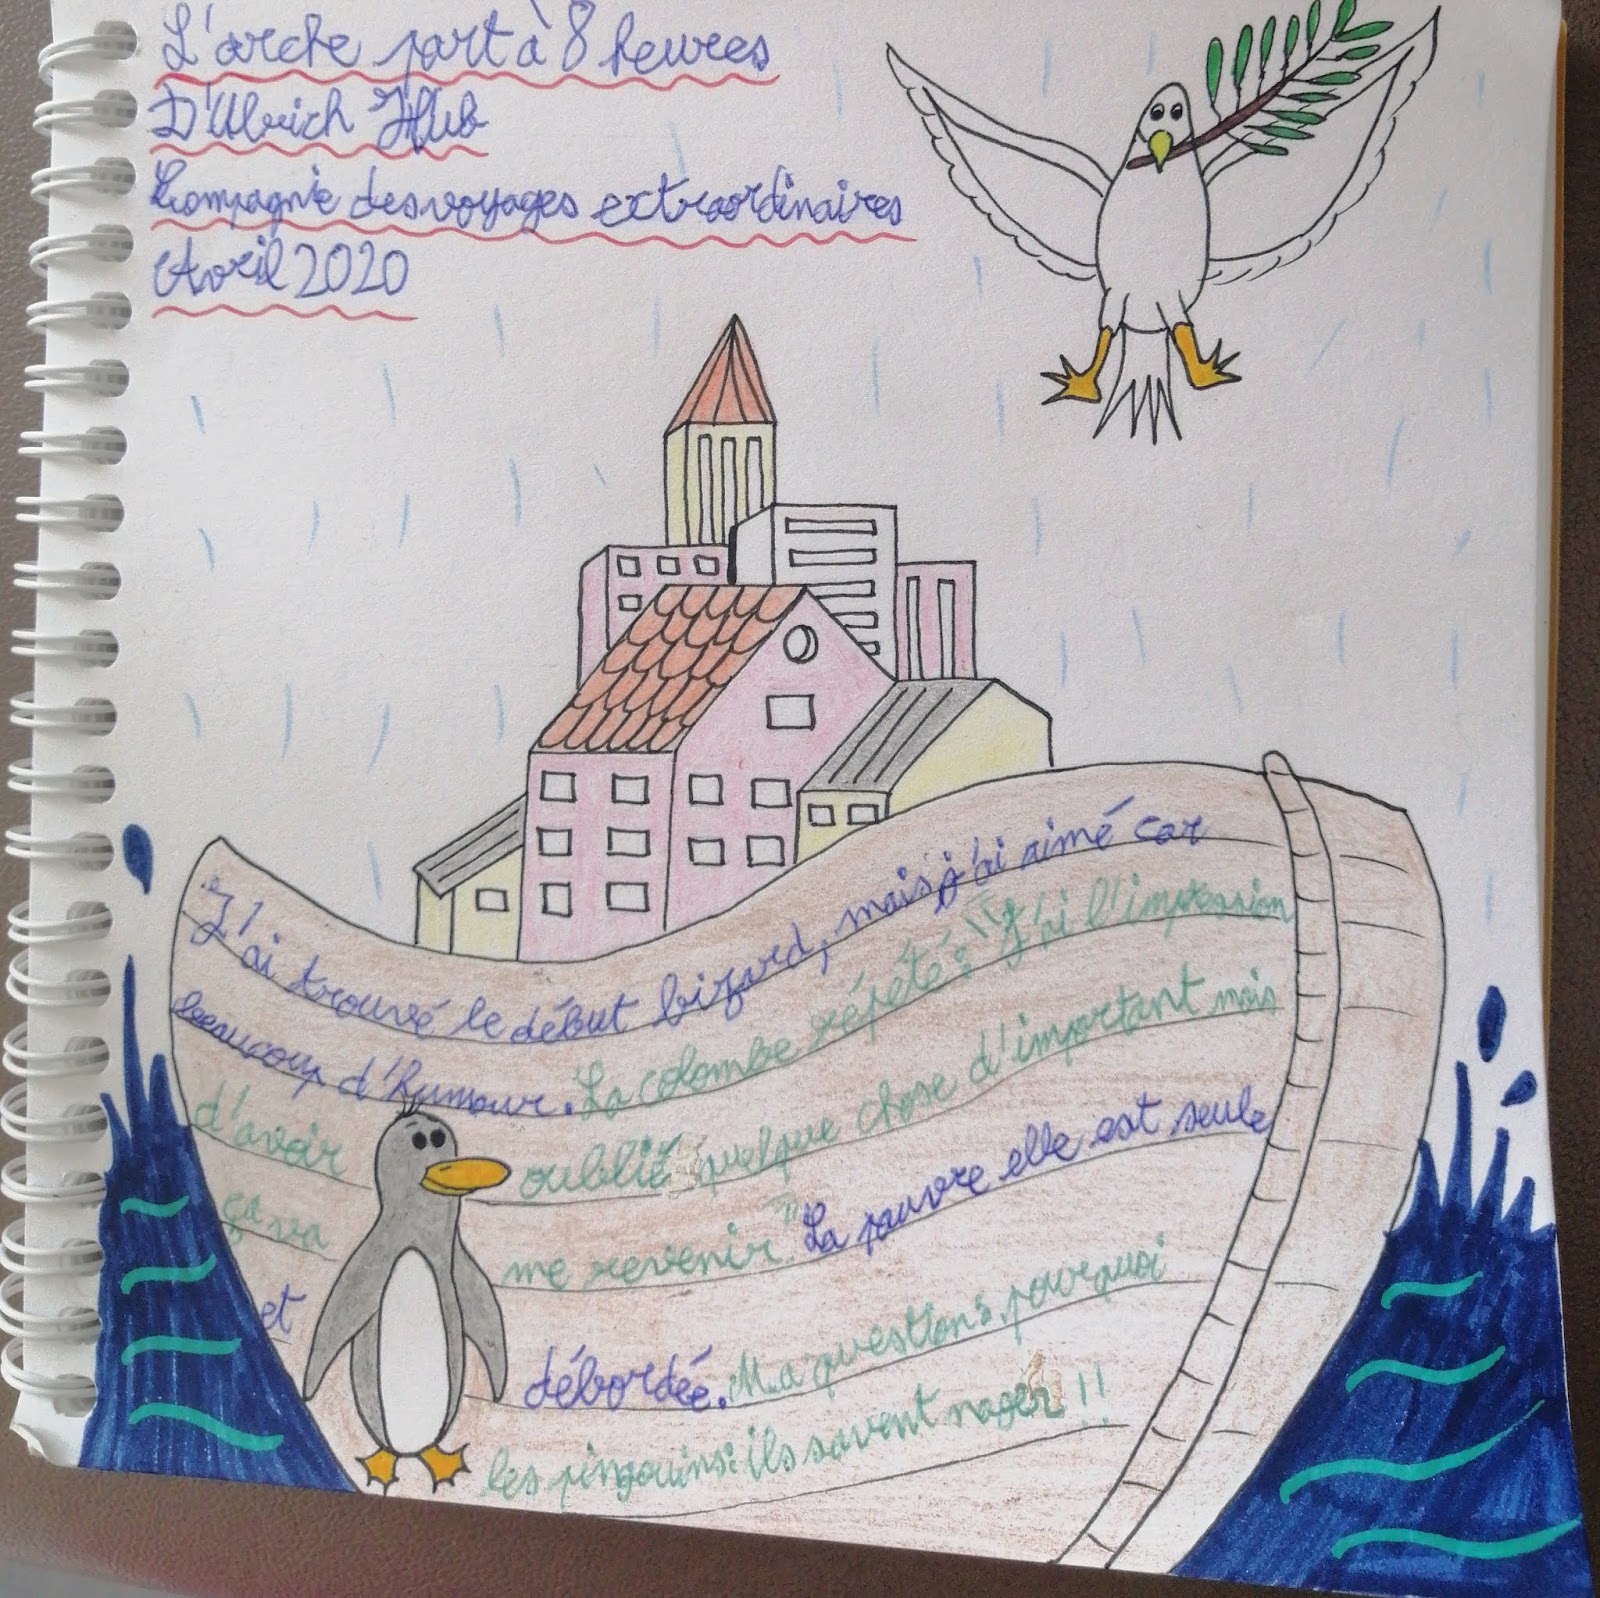 L'arche part à 8 heures
D'Ulrich Hub
Compagnie des voyages extraordinaires
Avril 2020
J'ai trouvé le début bizard, mais j'ai aimé car
beaucoup d'humour. La colombe répété: "J'ai l'impression
d'avoir oublié quelque chose d'important mais
ça va me revenir." La pauvre elle est seule
et débordée. Ma question: pourquoi
les pingouins: ils savent nager!!